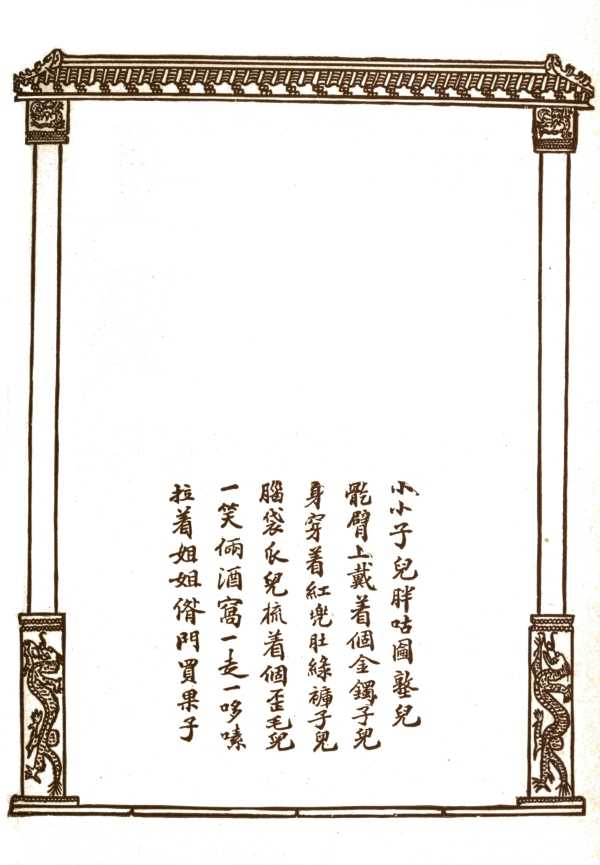 小小子兒胖咕圖墪兒
臂上戴着個金鐲子兒
身穿着紅兜肚綠褲子兒
腦袋瓜兒梳着個歪毛兒
一笑倆酒窩一走一哆嗦
拉着姐姐偺門買果子